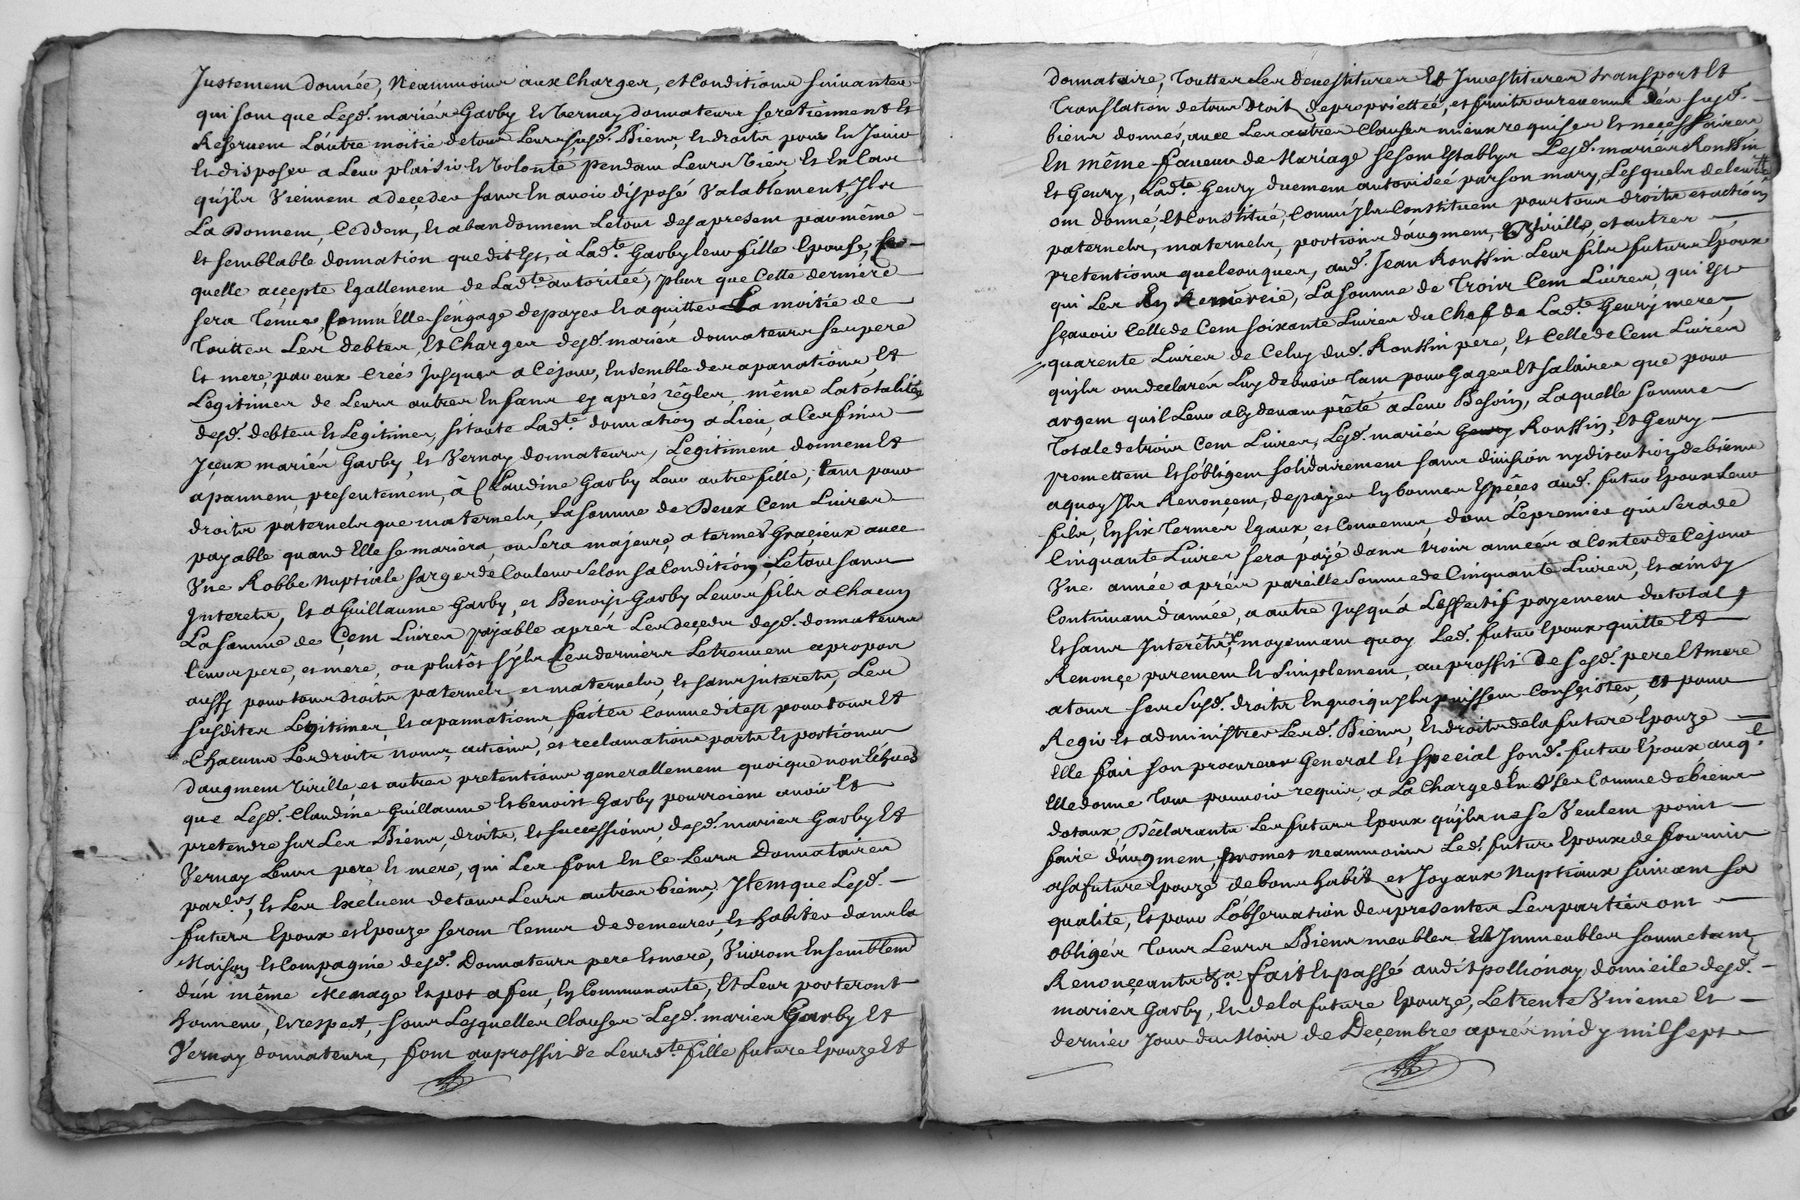 Justement donnée, Neammoins aux Charges, et Conditions suivantes
qui sont que Lesd. mariés Garby Et Vernay donnateurs se retiennent Et
Reservent L'autre moitié de tous Leurs susd. Biens, Et droits, pour En Jouir
Et disposer a Leur plaisir Et Volonté pendant Leurs Vies, Et En Cas
qu'jls Viennent a deçeder sans En avoir disposé Valablement, Jls
La Donnent, Ceddent, Et abandonnent Le tout des apresent par même
Et semblable donnation que dit Est, à Lad.te Garby leur fille Epouse, La-
quelle accepte Egallement de Lad.te autoritée, plus que Cette derniere
sera Tenue, Comm'Elle s'engage de payer Et aquitter La moitié de
Touttes Les debtes, Et Charges desd. mariés donnateurs ses pere
Et mere, par eux Creés Jusques a Ce jour, Ensemble des apanations, Et
Legitimes de Leurs autres Enfans cy aprés règlés, même La totalité
desd. debtes Et Legitimes, si toute Lad.te donnation a Lieu, a Ces fins
Jçeux mariés Garby, Et Vernay donnateurs, Legitiment donnent Et
apannent, presentement, à Claudine Garby Leur autre fille, tant pour
droits paternels que maternels, La somme de Deux Cent Livres
payable quand Elle se mariera, ou sera majeure, a termes Graçieux avec
Vne Robbe Nuptiale sarge de Couleur selon sa Condition, Le tout sans
Interets, Et a Guillaume Garby, et Benoist Garby Leurs fils a Chacun
La somme de Çent Livres payable aprés Les deçeds desd. donnateurs
Leurs pere, et mere, ou plutôt s'jls Ces derniers Le trouvent apropos
aussy pour tous droits paternels, et maternels, Et sans jnterets, Les
susdites Legitimes, Et apannations faites Comme dit Est pour tous Et
Chacuns Les droits noms, actions, et reclamations parts Et portions
d'augment Virille, et autres pretentions generallement quoique non Echues
que Lesd. Claudine Guillaume Et Benoist Garby pourroient avoir Et
pretendre sur Les Biens, droits, Et successions desd. mariés Garby Et
Vernay Leurs pere Et mere, qui Les font En Ce Leurs Donnataires
par.ers, Et Les Excluent de tous Leurs autres biens, Jtem que Lesd.
futurs Epoux et Epouze seront Tenus de demeurer, Et habiter dans la
Maison Et Compagnie desd. Donnateurs pere Et mere, Vivront Ensemblem.t
d'un même menage Et pot a feu, En Communauté, Et Leur porteront
honneur, Et respect, sous Lesquelles Clauses Lesd. mariés Garby Et
Vernay donnateurs, font au proffit de Leurd.te fille future Epouze Et
donnataire, Touttes Les devestitures Et Jnvestitures transport Et
Translation de tous droit de proprieteé, et fruits ou revenus des susd.
biens donnés, avec Les autres Clauses mieux requises Et necessaires
En même faveur de Mariage se sont Establys Lesd. mariés Roussin
Et Geury, Lad.te Geury duement autorisée par son mary, Lesquels de leurs
ont donné, Et Constitué, Comm'jls Constituent pour tous droits et actions
paternels, maternels, portions d'augment, Virille, et autres
pretentions quelconques, aud. Jean Roussin Leur fils futurs Epoux
qui Les En Remércie, La somme de Trois Cent Livres, qui Est
sçavoir Celle de Cent soixante Livres du Chef de Lad.te Geury mere,
quarente Livres de Celuy dud. Roussin pere, Et Celle de Cent Livres
qu'jls ont declarés Luy devoir Tant pour Gages Et salaires que pour
argent qu'il Leur a cy devant prêté a Leur Besoin, Laquelle somme
Totale de trois Cent Livres, Lesd. mariés Roussin, Et Geury
promettent Et s'obligent solidairement sans division ny discution de biens
a quoy Jls Renonçent, de payer En bonnes Espêces aud. futur Epoux Leur
fils, En six Termes Egaux, et Convenus, dont Le premier qui sera de
Cinquante Livres sera payé dans trois années a Conter de Ce jour
Vne année aprés pareille somme de Cinquante Livres, Et ainsy
Continuant d'année, a autre Jusqu'a L'effectif payement du total
Et sans Intérêts, moyennant quoy Led. futur Epoux quitte Et
Renonçe purement Et simplement, au proffit de sesd. pere Et mere
a tous ses susd. droits En quoi qu'jls puissent Consçister, Et pour
Regir Et administrer Lesd. Biens, Et droits de la future Epouze
Elle fait son procureur General Et special sond. futur Epoux auq.l
Elle donne Tout pouvoir requis, a La Charge d'En User Comme de biens
dotaux, Déclarants Les futurs Epoux qu'jls ne se Veulent point
faire d'augment, promet neammoins Led. futur Epoux de fournir
a sa future Epouze de bons habits et Joyaux Nuptiaux suivant sa
qualité, Et pour L'observation des presentes Les parties ont
obligés Tous Leurs Biens meubles Et Jmmeubles soumettants
Renonçeants &.a fait Et passé audit pollionay domicile desd.
mariés Garby, Et de la future Epouze, Le trente Vnieme Et
dernier Jour du Mois de Deçembre aprés midy mil sept